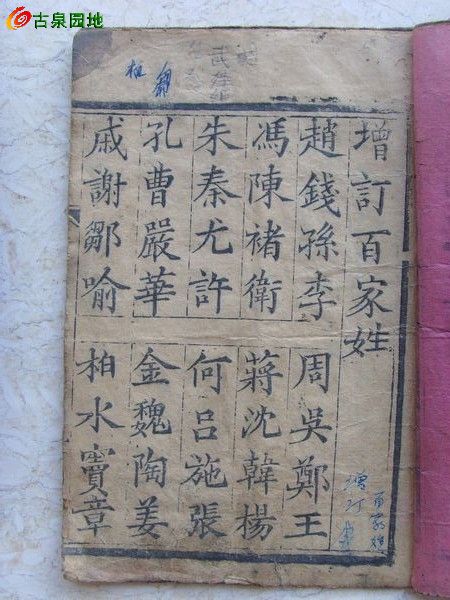 古泉园地
增訂百家姓
趙錢孫李 周吳鄭王
馮陳褚衛 蔣沈韓楊
朱秦尤許 何呂施張
孔曹嚴華 金魏陶姜
戚謝鄒喻 柏水竇章
百家姓
增订